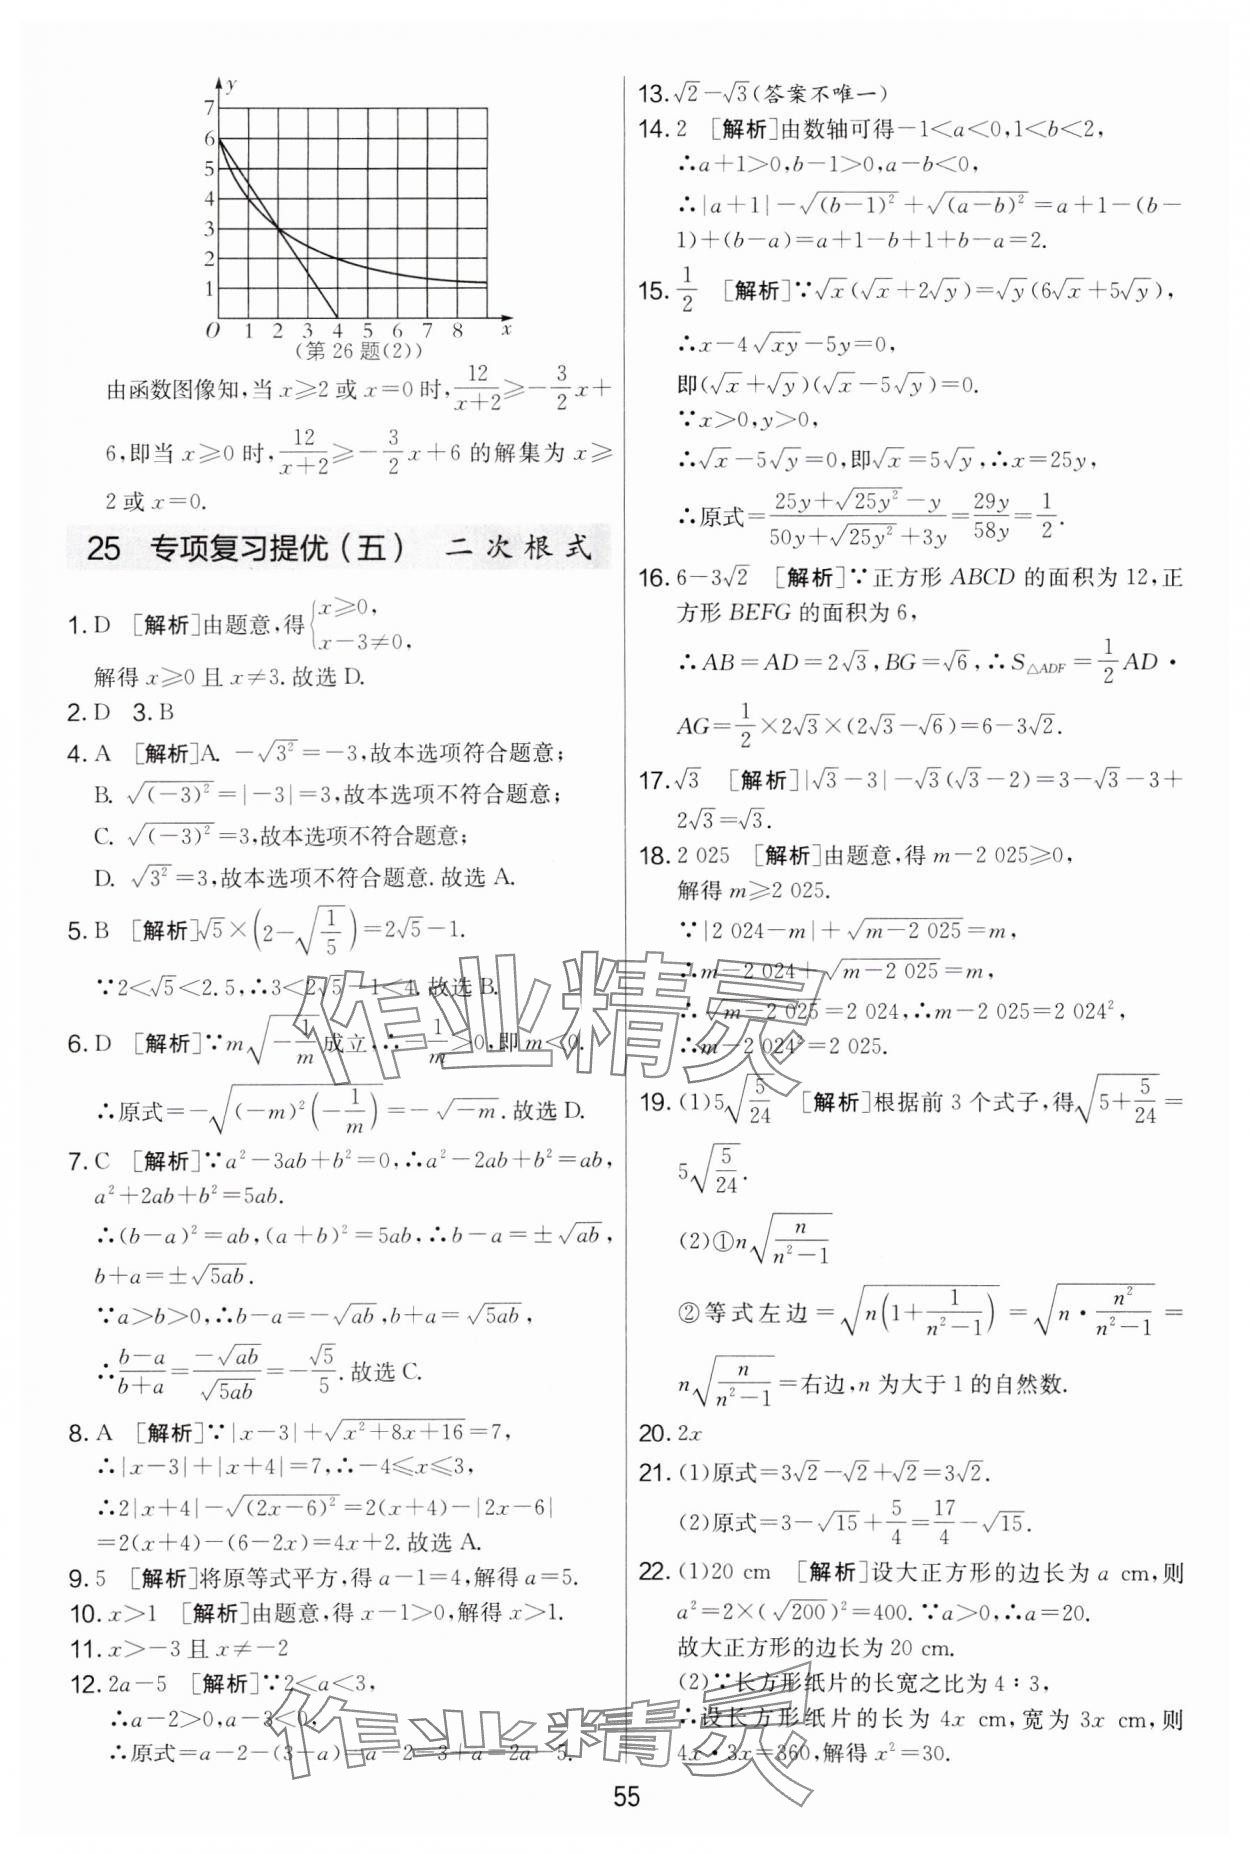 y
7
6
5
4
3
2
1
O 1 2 3 4 5 6 7 8 x
(第26题(2))
由函数图像知,当x≥2或x=0时,12/(x+2)≥-3/2x+
6,即当x≥0时,12/(x+2)≥-3/2x+6的解集为x≥
2或x=0.
25 专项复习提优(五) 二次根式
1. D [解析]由题意,得{x≥0, x-3≠0,
解得x≥0且x≠3.故选D.
2. D 3. B
4. A [解析]A. -√(3²)=-3,故本选项符合题意;
B. √((-3)²)=|-3|=3,故本选项不符合题意;
C. √((-3)²)=3,故本选项不符合题意;
D. √(3²)=3,故本选项不符合题意.故选A.
5. B [解析]√5×(2-√(1/5))=2√5-1.
∵2<√5<2.5,∴3<2√5-1<4.故选B.
6. D [解析]∵m√(-1/m)成立,∴-1/m>0,即m<0.
∴原式=-√((-m)²(-1/m))=-√(-m).故选D.
7. C [解析]∵a²-3ab+b²=0,∴a²-2ab+b²=ab,
a²+2ab+b²=5ab.
∴(b-a)²=ab,(a+b)²=5ab,∴b-a=±√(ab),
b+a=±√(5ab).
∵a>b>0,∴b-a=-√(ab),b+a=√(5ab),
∴(b-a)/(b+a)=-√(ab)/√(5ab)=-√5/5.故选C.
8. A [解析]∵|x-3|+√(x²+8x+16)=7,
∴|x-3|+|x+4|=7,∴-4≤x≤3,
∴2|x+4|-√((2x-6)²)=2(x+4)-|2x-6|
=2(x+4)-(6-2x)=4x+2.故选A.
9. 5 [解析]将原等式平方,得a-1=4,解得a=5.
10. x>1 [解析]由题意,得x-1>0,解得x>1.
11. x>-3且x≠-2
12. 2a-5 [解析]∵2<a<3,
∴a-2>0,a-3<0,
∴原式=a-2-(3-a)=a-2-3+a=2a-5.
13. √2-√3(答案不唯一)
14. 2 [解析]由数轴可得-1<a<0,1<b<2,
∴a+1>0,b-1>0,a-b<0,
∴|a+1|-√((b-1)²)+√((a-b)²)=a+1-(b-
1)+(b-a)=a+1-b+1+b-a=2.
15. 1/2 [解析]∵√x(√x+2√y)=√y(6√x+5√y),
∴x-4√(xy)-5y=0,
即(√x+√y)(√x-5√y)=0.
∵x>0,y>0,
∴√x-5√y=0,即√x=5√y,∴x=25y,
∴原式=(25y+√(25y²)-y)/(50y+√(25y²)+3y)=29y/58y=1/2.
16. 6-3√2 [解析]∵正方形ABCD的面积为12,正
方形BEFG的面积为6,
∴AB=AD=2√3,BG=√6,∴S△ADF=1/2AD·
AG=1/2×2√3×(2√3-√6)=6-3√2.
17. √3 [解析]|√3-3|-√3(√3-2)=3-√3-3+
2√3=√3.
18. 2 025 [解析]由题意,得m-2 025≥0,
解得m≥2 025.
∵|2 024-m|+√(m-2 025)=m,
∴m-2 024+√(m-2 025)=m,
∴√(m-2 025)=2 024,∴m-2 025=2 024²,
∴m-2 024²=2 025.
19. (1)5√(5/24) [解析]根据前3个式子,得√(5+5/24)=
5√(5/24).
(2)①n√(n/(n²-1))
②等式左边=√(n(1+1/(n²-1)))=√(n·n²/(n²-1))=
n√(n/(n²-1))=右边,n为大于1的自然数.
20. 2x
21. (1)原式=3√2-√2+√2=3√2.
(2)原式=3-√15+5/4=17/4-√15.
22. (1)20 cm [解析]设大正方形的边长为a cm,则
a²=2×(√200)²=400.∵a>0,∴a=20.
故大正方形的边长为20 cm.
(2)∵长方形纸片的长宽之比为4∶3,
∴设长方形纸片的长为4x cm,宽为3x cm,则
4x·3x=360,解得x²=30.
作业精灵
作业精灵
55